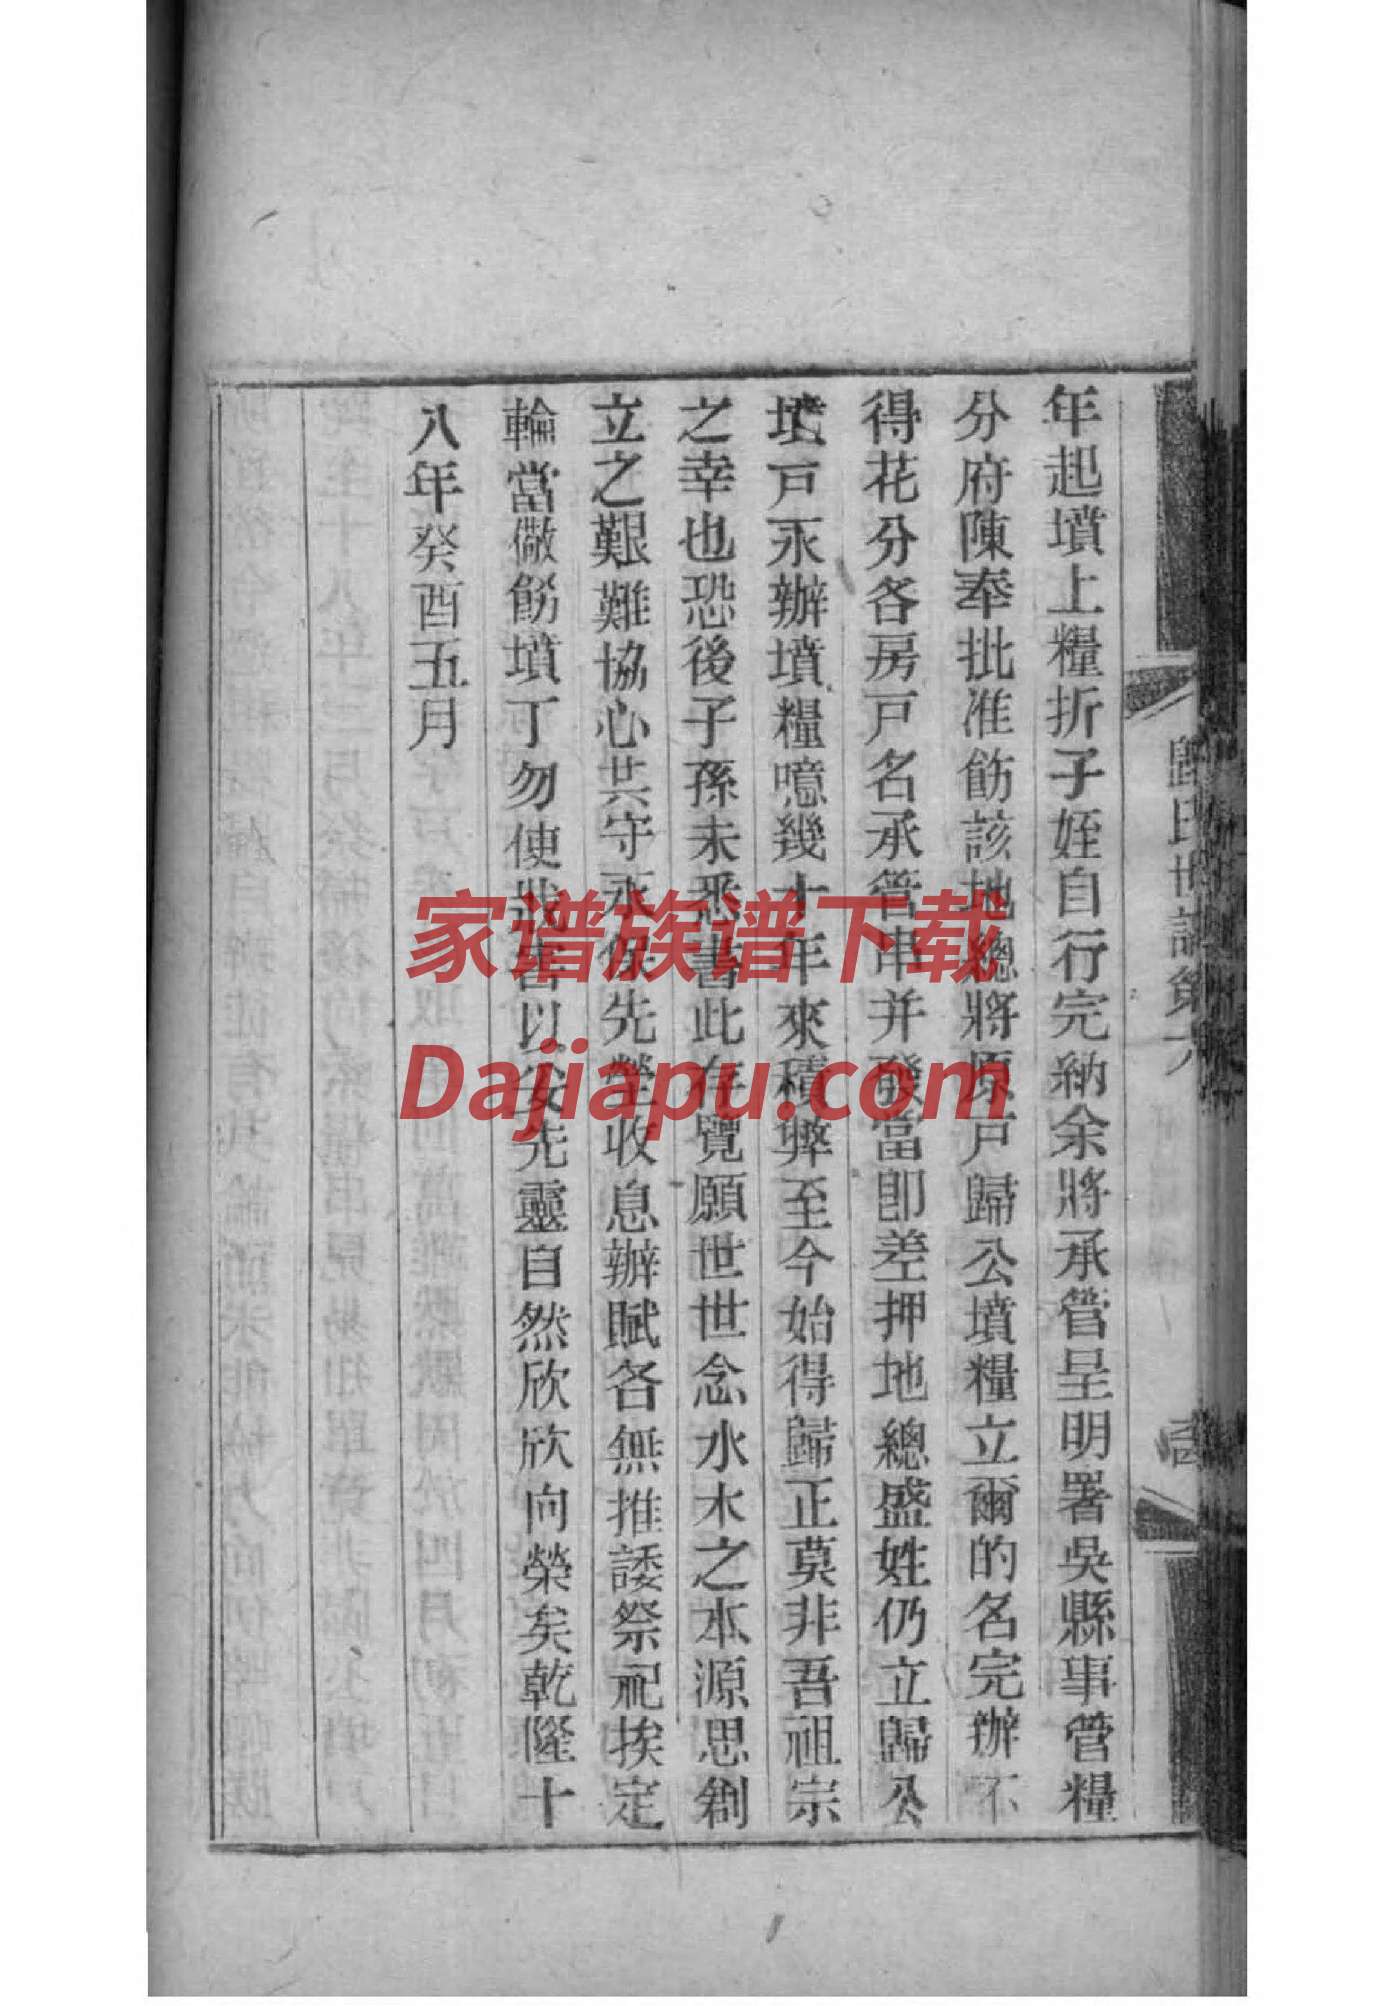 年起墳上糧折子姪自行完納余將承管呈明署吳縣事管糧
分府陳奉批准飭該地總將原戶歸公墳糧立爾的名完辦不
得花分各房戶名承管串并發當即差押地總盛姓仍立歸公
墳戶永辦墳糧噫幾十年來積弊至今始得歸正莫非吾祖宗
之幸也恐後子孫未悉書此存覽願世世念水木之本源思創
立之艱難協心共守永保先塋收息辦賦各無推諉祭祀挨定
輪當儆飭墳丁勿使戕害以安先靈自然欣欣向榮矣乾隆十
八年癸酉五月
歸氏世譜第六
家谱族谱下载
Dajiapu.com